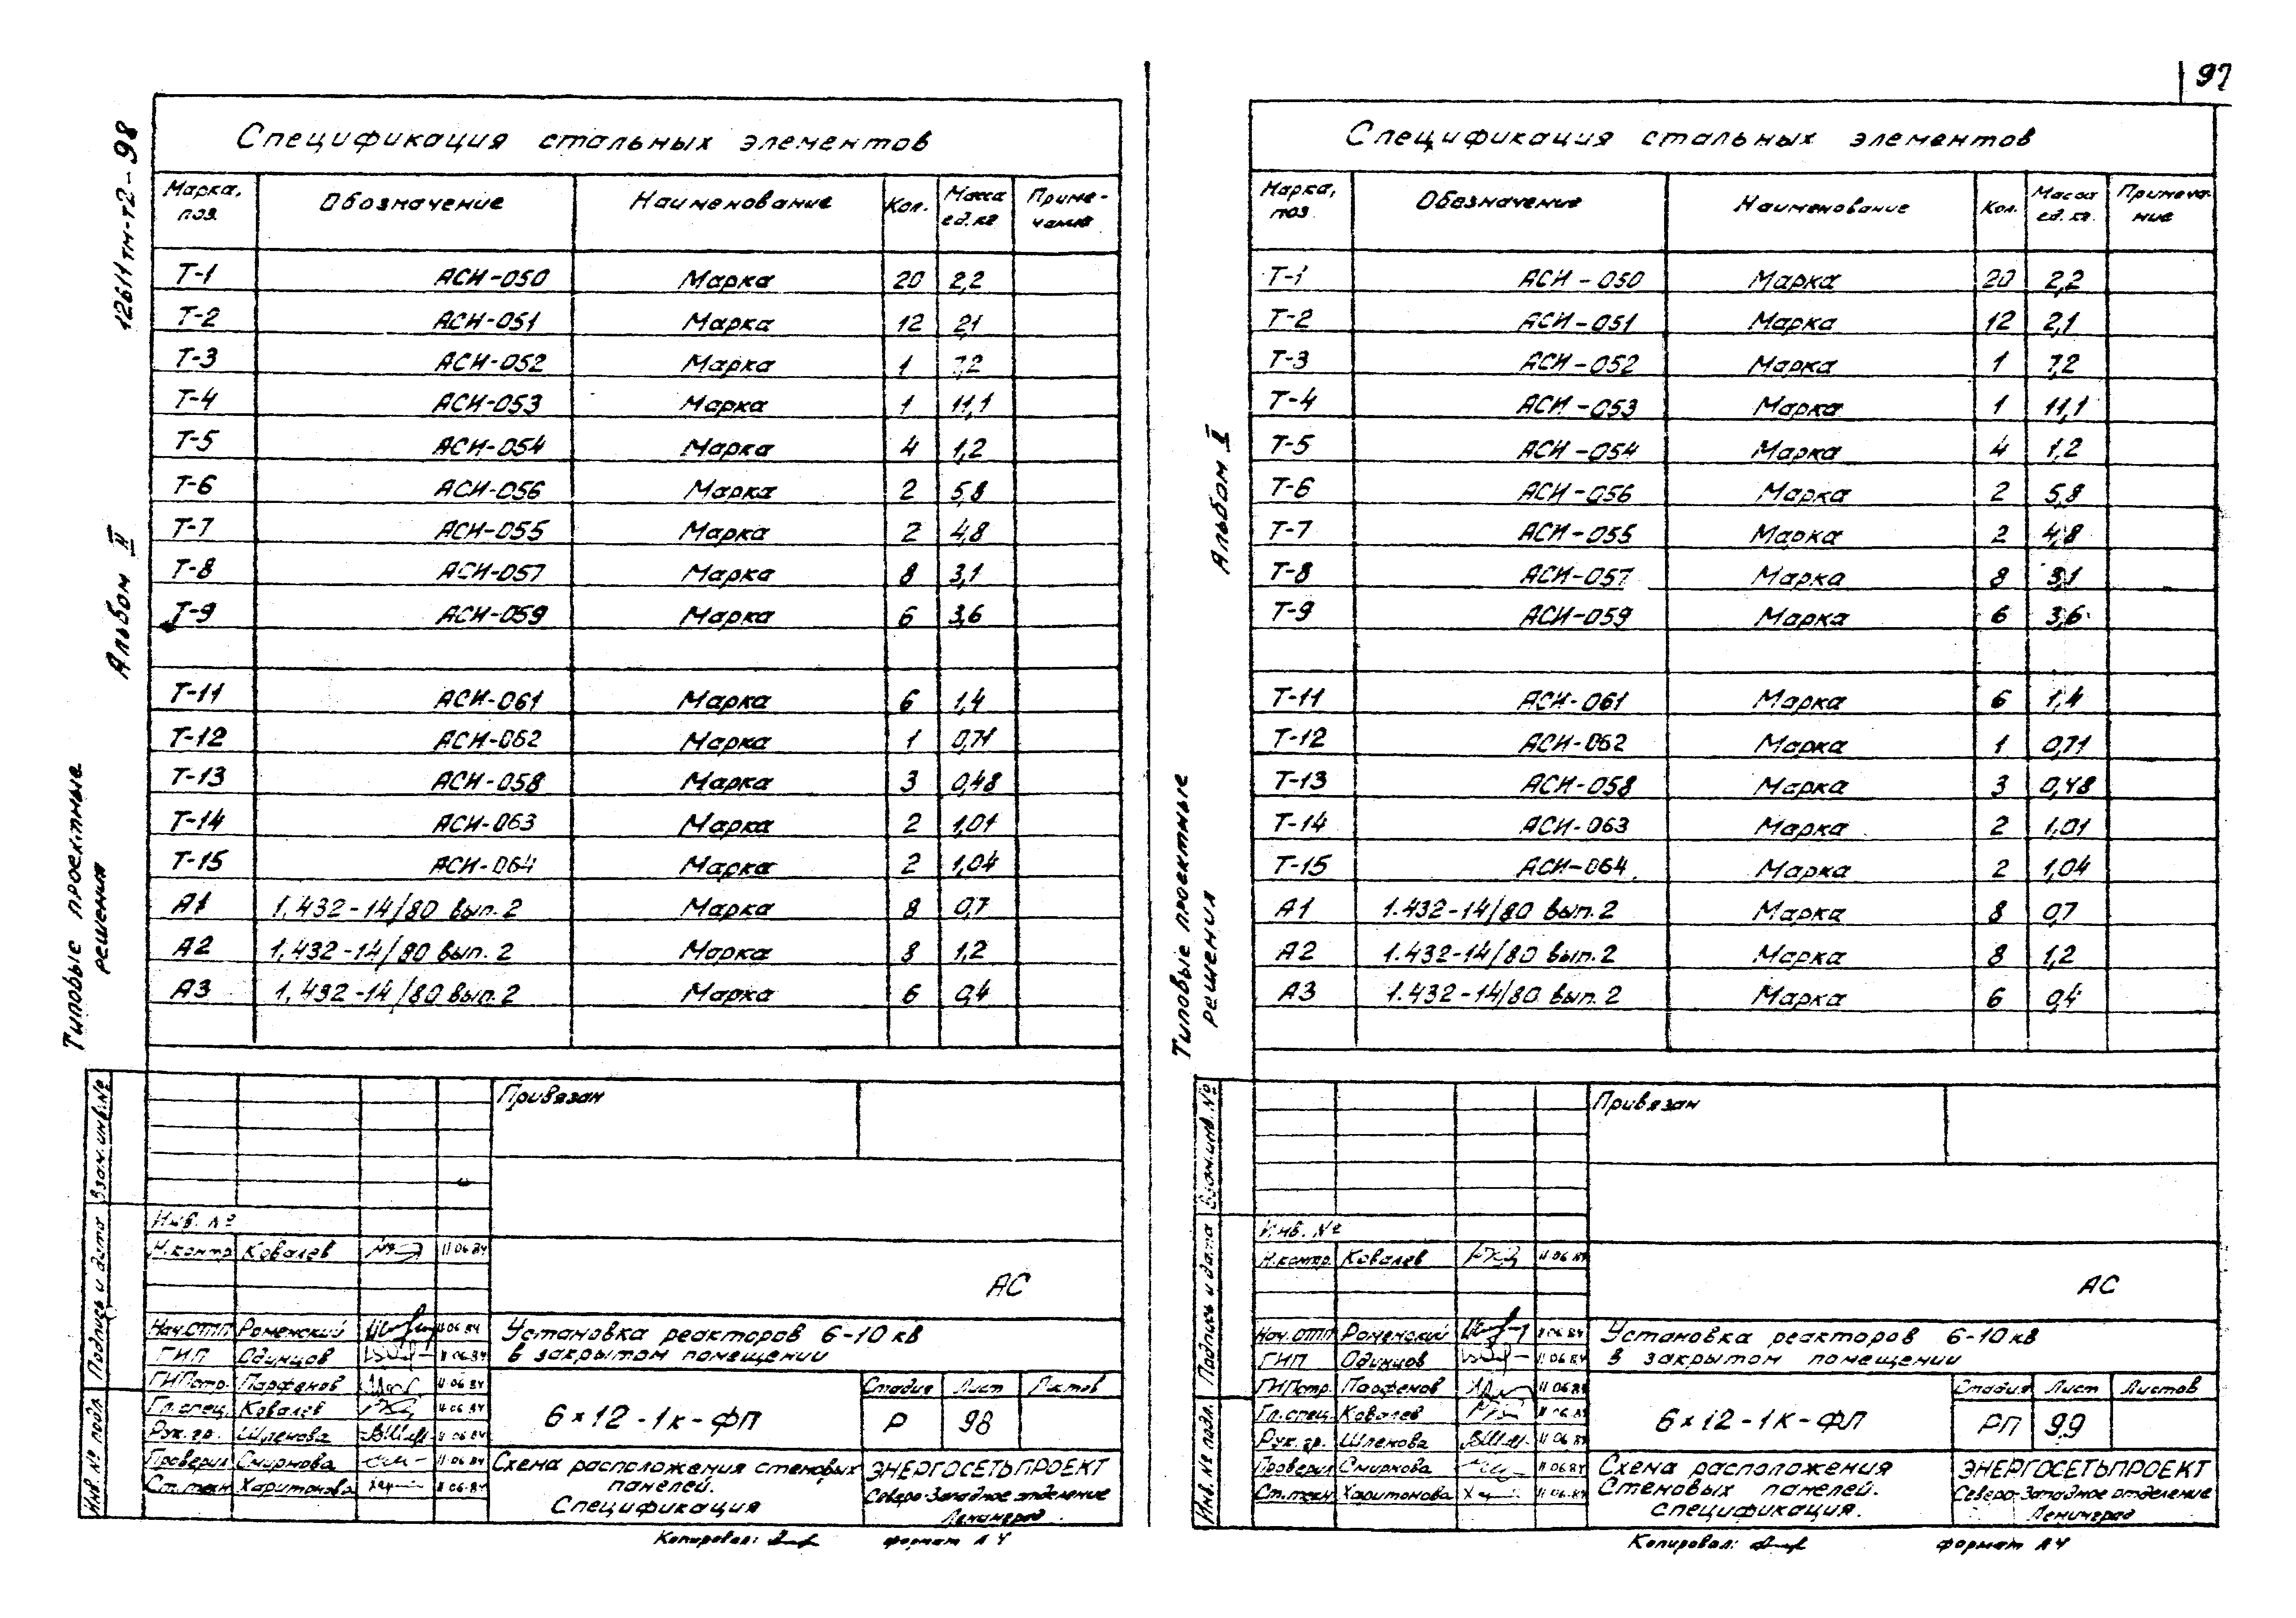 97
12611тм-т2-98
Альбом II
Типовые проектные
решения
Спецификация стальных элементов
Марка, поз. Обозначение Наименование Кол. Масса ед. кг Примечание
Т-1 АСИ-050 Марка 20 2,2
Т-2 АСИ-051 Марка 12 2,1
Т-3 АСИ-052 Марка 1 7,2
Т-4 АСИ-053 Марка 1 11,1
Т-5 АСИ-054 Марка 4 1,2
Т-6 АСИ-056 Марка 2 5,8
Т-7 АСИ-055 Марка 2 4,8
Т-8 АСИ-057 Марка 8 3,1
Т-9 АСИ-059 Марка 6 3,6
Т-11 АСИ-061 Марка 6 1,4
Т-12 АСИ-062 Марка 1 0,71
Т-13 АСИ-058 Марка 3 0,48
Т-14 АСИ-063 Марка 2 1,01
Т-15 АСИ-064 Марка 2 1,04
А1 1.432-14/80 вып. 2 Марка 8 0,7
А2 1.432-14/80 вып. 2 Марка 8 1,2
А3 1.432-14/80 вып. 2 Марка 6 0,4
Взам. инв. №
Подпись и дата
Инв. № подл.
Привязан
Инв. №
Н.контр Ковалев 11 06 84
АС
Нач.ОТП Роменский 11 06 84
ГИП Одинцов 11 06 84
ГИПстр. Парфенов 11 06 84
Гл.спец. Ковалев 11 06 84
Рук. гр. Шленова 11 06 84
Проверил Смирнова 11 06 84
Ст.техн Харитонова 11 06 84
Установка реакторов 6-10 кв
в закрытом помещении
6×12-1к-ФП
Стадия Лист Листов
Р 98
Схема расположения стеновых
панелей.
Спецификация
ЭНЕРГОСЕТЬПРОЕКТ
Северо-Западное отделение
Ленинград
Копировал: формат А4
Альбом II
Типовые проектные
решения
Спецификация стальных элементов
Марка, поз. Обозначение Наименование Кол. Масса ед. кг. Примечание
Т-1 АСИ-050 Марка 20 2,2
Т-2 АСИ-051 Марка 12 2,1
Т-3 АСИ-052 Марка 1 7,2
Т-4 АСИ-053 Марка 1 11,1
Т-5 АСИ-054 Марка 4 1,2
Т-6 АСИ-056 Марка 2 5,8
Т-7 АСИ-055 Марка 2 4,8
Т-8 АСИ-057 Марка 8 3,1
Т-9 АСИ-059 Марка 6 3,6
Т-11 АСИ-061 Марка 6 1,4
Т-12 АСИ-062 Марка 1 0,71
Т-13 АСИ-058 Марка 3 0,48
Т-14 АСИ-063 Марка 2 1,01
Т-15 АСИ-064 Марка 2 1,04
А1 1.432-14/80 вып. 2 Марка 8 0,7
А2 1.432-14/80 вып. 2 Марка 8 1,2
А3 1.432-14/80 вып. 2 Марка 6 0,4
Взам. инв. №
Подпись и дата
Инв. № подл.
Привязан
Инв. №
Н.контр. Ковалев 11 06 84
АС
Нач.ОТП Роменский 11 06 84
ГИП Одинцов 11 06 84
ГИПстр. Парфенов 11 06 84
Гл.спец. Ковалев 11 06 84
Рук. гр. Шленова 11 06 84
Проверил Смирнова 11 06 84
Ст.техн Харитонова 11 06 84
Установка реакторов 6-10 кв
в закрытом помещении
6×12-1к-ФП
Стадия Лист Листов
РП 99
Схема расположения
стеновых панелей.
спецификация.
ЭНЕРГОСЕТЬПРОЕКТ
Северо-Западное отделение
Ленинград
Копировал: формат А4